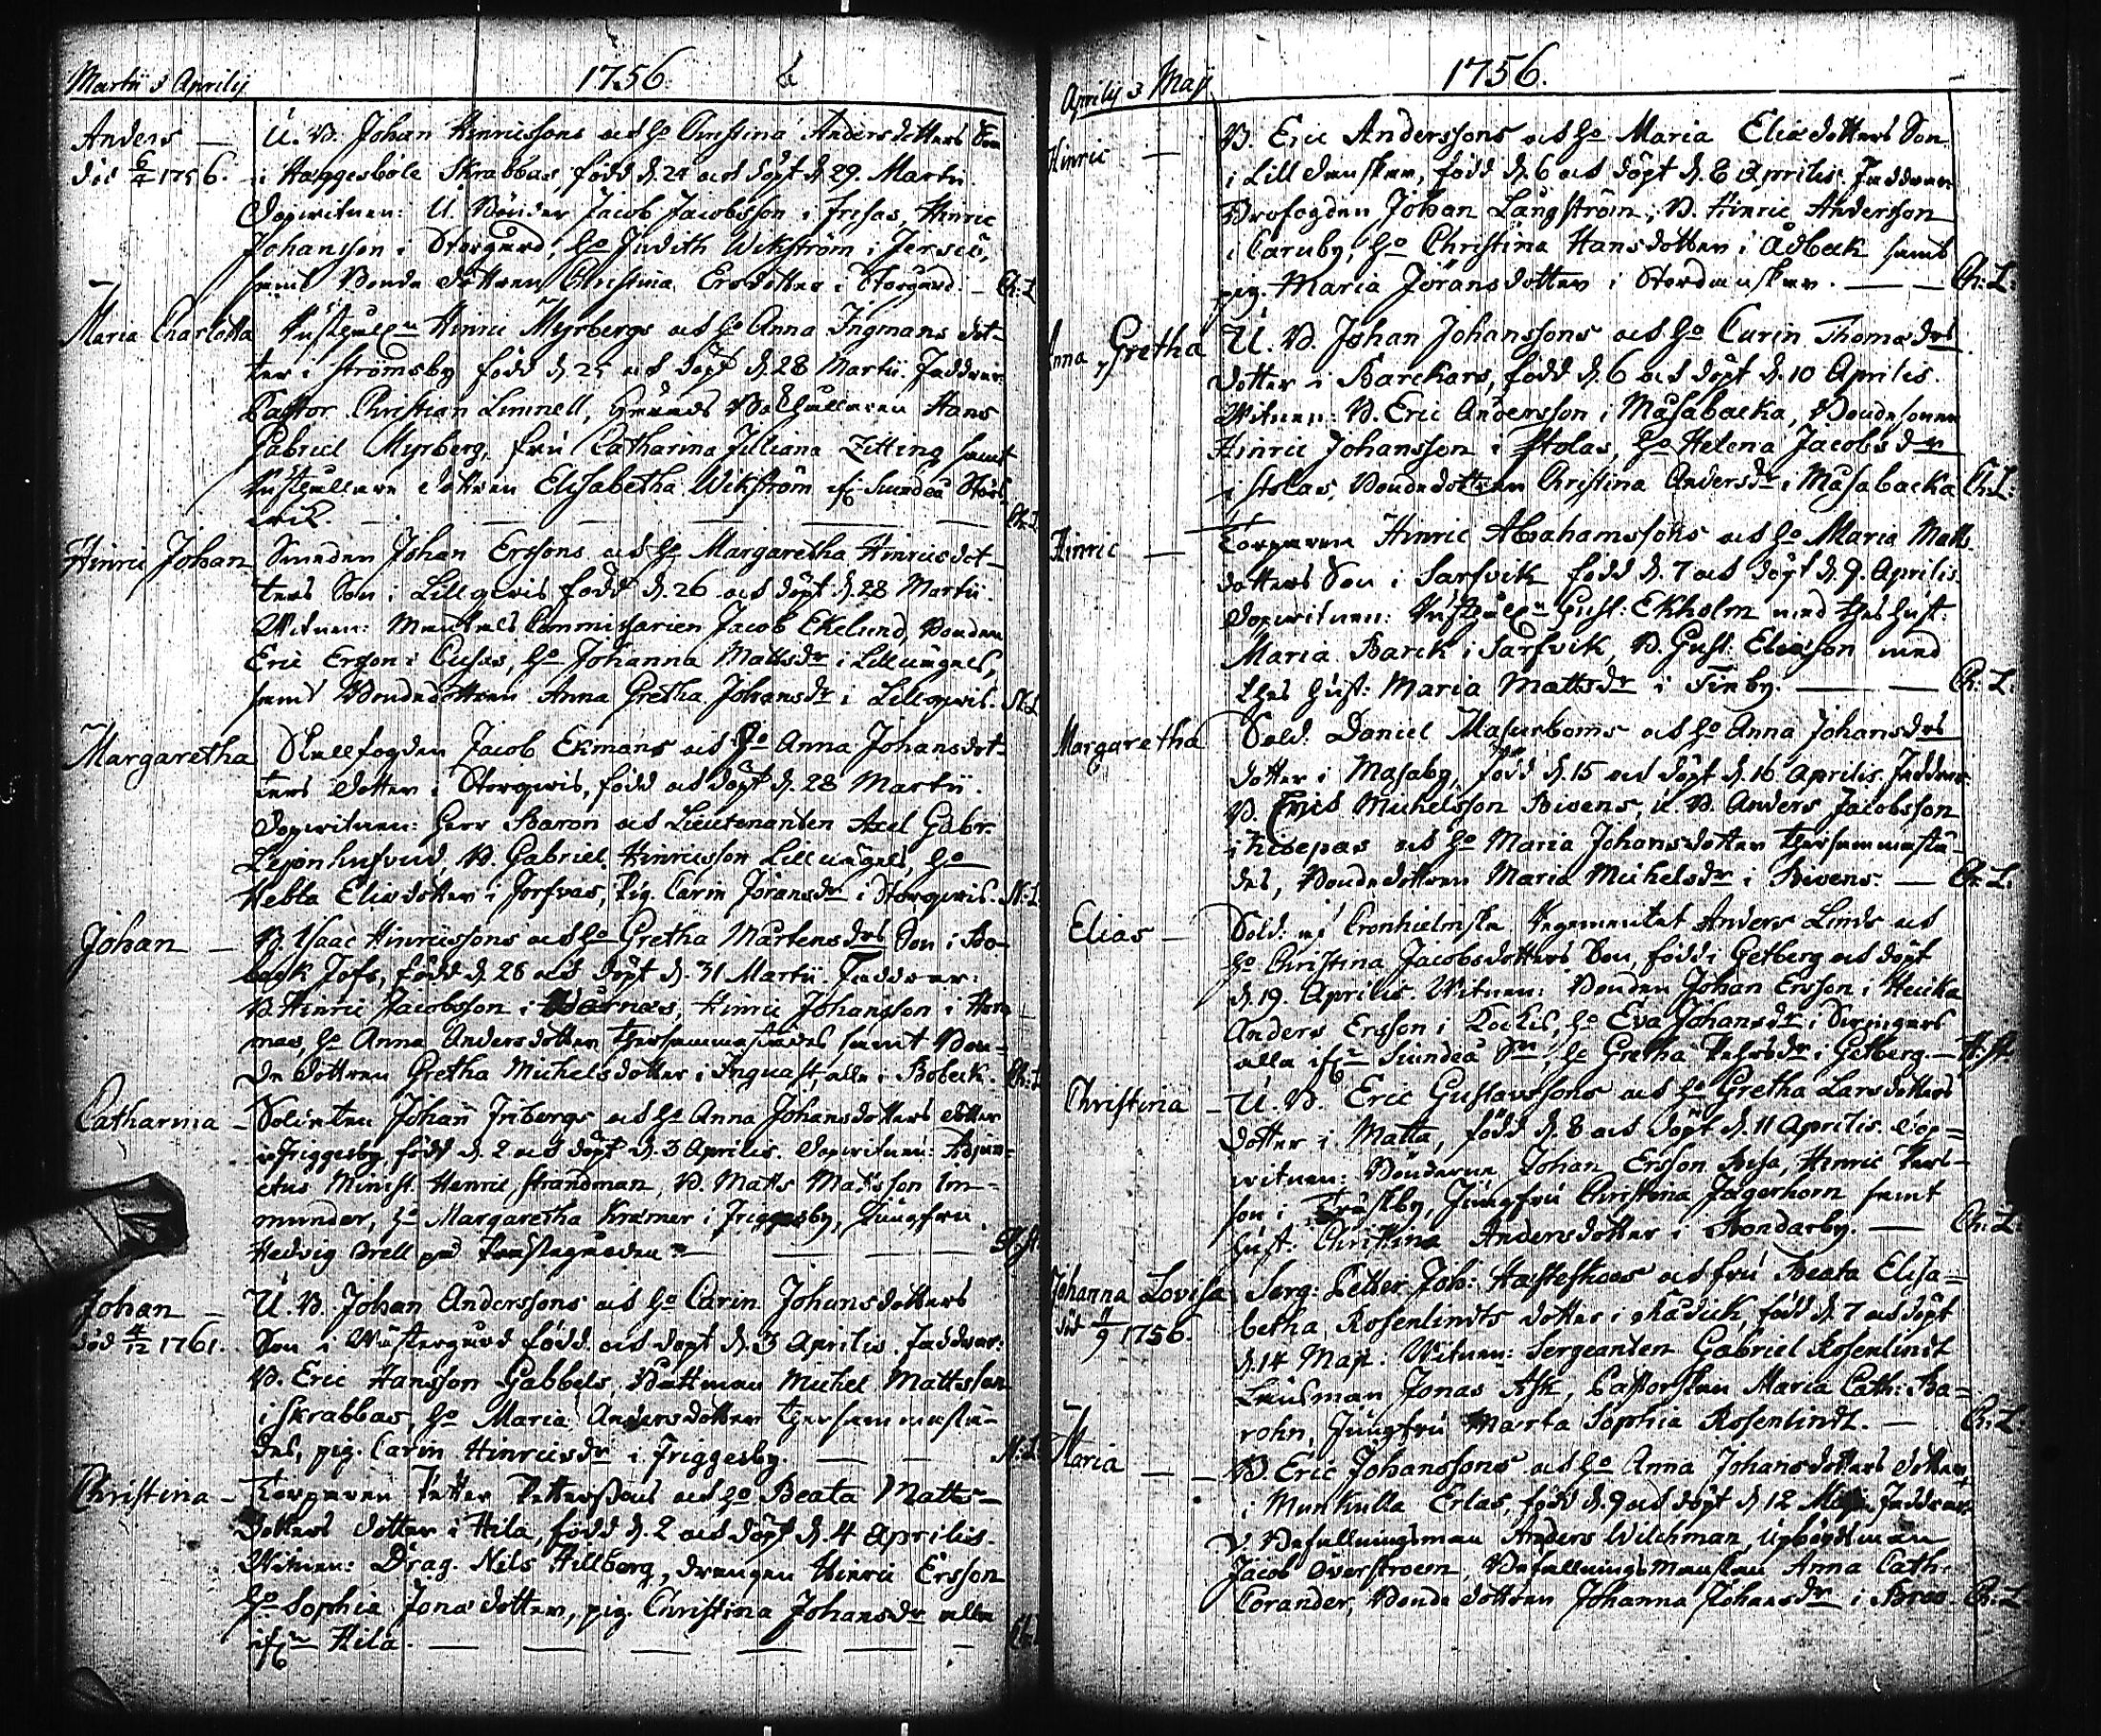 Martii & Aprilis
1756.
Anders —
död 6/4 1756.
U. B. Johan Hinricssons och ho Christina Andersdotters Son
i Haggesböle Skrabbas, född d. 24 och döpt d. 29. Martii.
Dopvitnen: U. Bönder Jacob Jacobsson i Frisas, Hinric
Johansson i Storgård, ho Judith Wikström i
samt Bonde dottren Christina Ersdotter i Storgård. — Ch: L
Maria Charlotta
Hinric Myrbergs och ho Anna Ingmans dot-
ter i Strömsby född d. 25 och döpt d. 28 Martii. Faddrar
Pastor Christian Limnell, Bokhållaren Hans
Gabriel Myrberg, fru Catharina Juliana Zitting samt
dottren Elisabetha Wikström if: Siundeå
Ch: L
Hinric Johan
Smeden Johan Erssons och ho Margaretha Hinricsdot-
ters Son i Lillqvis född d. 26 och döpt d. 28 Martii.
Vitnen: Commissarien Jacob Ekelund, Bonden
Eric Ersson i Cusas, ho Johanna Mattsdr i Lillängels,
samt Bondedottren Anna Gretha Johansdr i Lillqvis. N: L
Margaretha
Jacob Ekmans och ho Anna Johansdot-
ters dotter i Storqvis, född och döpt d. 28 Martii.
Dopvitnen: Herr Baron och Lieutenanten Axel Gabr.
Lejonhufvud, B. Gabriel Hinricsson Lillängels, ho
Hebla Eliædotter i Jorfvas, Pig. Carin Jöransdr i Storqvis. N: L
Johan —
B. Isaac Hinricssons och ho Gretha Mårtensdrs Son i Bo-
beck Jofs, född d. 28 och döpt d. 31 Martii. Faddrar:
B. Hinric Jacobsson i Hinric Johansson i Hem-
mas, ho Anna Andersdotter thersammastädes samt Bon-
de dottren Gretha Michelsdotter i Inguast, alla i Bobeck. Ch: L
Catharina —
Soldaten Johan Fribergs och ho Anna Johansdotters dotter
i Friggesby, född d. 2 och döpt d. 3 Aprilis. Dopvitnen: Adjun-
ctus Minist Henric Strandman, B. Matts Mattsson Im-
munder, ho Margaretha Kræmer i Friggesby, Jungfru
Hedvig Brell på Prästegården —
Johan —
död 4/12 1761.
U. B. Johan Anderssons och ho Carin Johansdotters
Son i Wästergård född och döpt d. 3 Aprilis. Faddrar:
B. Eric Hansson Gabbels, Michel Mattsson
i Skrabbas, ho Maria Andersdotter thersammastä-
des, pig. Carin Hinricsdr i Friggesby. — N: L
Christina —
Torparen Petter Petterssons och ho Beata Matts-
dotters dotter i Hila, född d. 2 och döpt d. 4 Aprilis.
Vitnen: Drag. Nils Hillberg, drengen Hinric Ersson
ho Sophia Jonædotter, pig. Christina Johansdr alla
ifrn Hila. — Ch: L
Aprilis & Maji
1756.
Hinric —
B. Eric Anderssons och ho Maria Eliædotters Son
i Lill dansker, född d. 6 och döpt d. 8 Aprilis. Faddrar
Brofogden Johan Långström, B. Hinric Andersson
i Caruby, ho Christina Hansdotter i ÅDback samt
pig. Maria Jöransdotter i Stordansker. — Ch: L:
Anna Gretha
U. B. Johan Johanssons och ho Carin Thomædrs
dotter i Barckars, född d. 6 och döpt d. 10 Aprilis.
Vitnen: B. Eric Andersson i Måsabacka, Bondesonen
Hinric Johansson i Stolas, ho Helena Jacobsdr
i Stolas, Bondedottren Christina Andersdr i Måsabacka Ch: L:
Hinric —
Torparen Hinric Abrahamssons och ho Maria Matts-
dotters Son i Sarfvik född d. 7 och döpt d. 9. Aprilis.
Dopvitnen: Gust: Ekholm med thes hust:
Maria Barck i Sarfvik, B. Gust: Eliæson med
thes hust: Maria Mattsdr i Finby. — Ch: L:
Margaretha
Sold. Daniel Masurboms och ho Anna Johansdrs
dotter i Masaby, född d. 15 och döpt d. 16 Aprilis. Faddrar:
B. Michelsson Bivens, U. B. Anders Jacobsson
i och ho Maria Johansdotter thersammastä-
des, Bondedottren Maria Michelsdr i Bivens. — Ch: L:
Elias —
Sold: af Cronhielmska Regementet Anders Linds och
ho Christina Jacobsdotters Son, född i Getberg och döpt
d. 19. Aprilis. Vitnen: Bonden Johan Ersson i Heicka
Anders Ersson i Kockis, ho Eva Johansdr i
alla ifrn Siundeå Sn, ho Gretha Pehrsdr i Getberg. —
Christina —
U. B. Eric Gustavssons och ho Gretha Larsdotters
dotter i Matta, född d. 8 och döpt d. 11 Aprilis. Dop-
vitnen: Bönderne Johan Ersson Bisa, Hinric Pers-
son i Träskby, Jungfru Christina Jägerhorn samt
hust. Christina Andersdotter i Bondarby. — Ch: L:
Johanna Lovisa
död 11/9 1756.
Serg: Petter Joh: Hästeskoos och fru Beata Elisa-
betha Rosenlindts dotter i Rådick, född d. 7 och döpt
d. 14 Maji: Vitnen: Sergeanten Gabriel Rosenlindt
Länsman Jonas Ask, Pastorskan Maria Cath: Ba-
rohn, Jungfru Marta Sophia Rosenlindt. — Ch: L
Maria — —
B. Eric Johanssons och ho Anna Johansdotters dotter
i Munkulla Erlas, född d. 9 och döpt d. 12 Maji. Faddrar
v. Befallningsman Anders Wilchman, Upbördsman
Jacob Överstroem, Befallningsmanskan Anna Cath:
Corander, Bonde dottren Johanna Johansdr i Broo. Ch: L